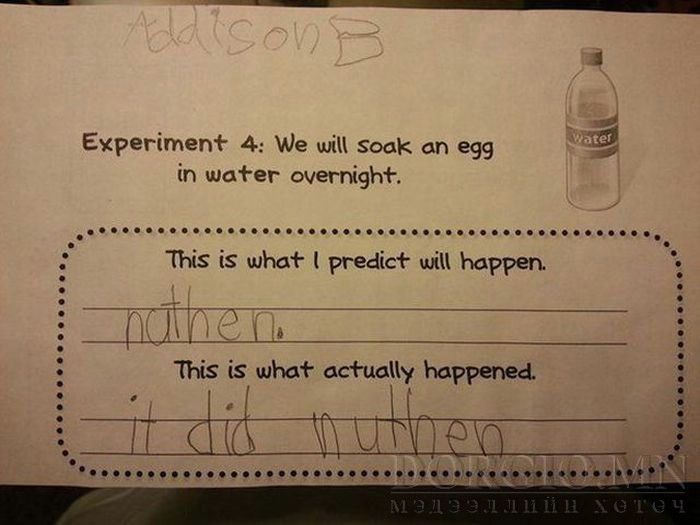 Addison B
Experiment 4: We will soak an egg
in water overnight.
water
This is what I predict will happen.
nuthen.
This is what actually happened.
it did nuthen
DORGIO.MN
МЭДЭЭЛЛИЙН ХӨТӨЧ